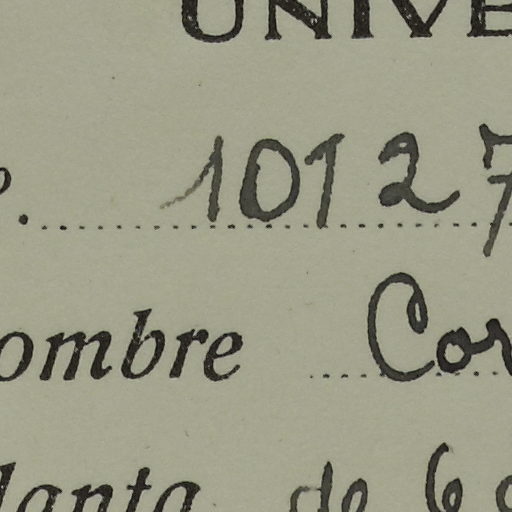 UNIVE
º. 10127
ombre Cor
lanta de 6